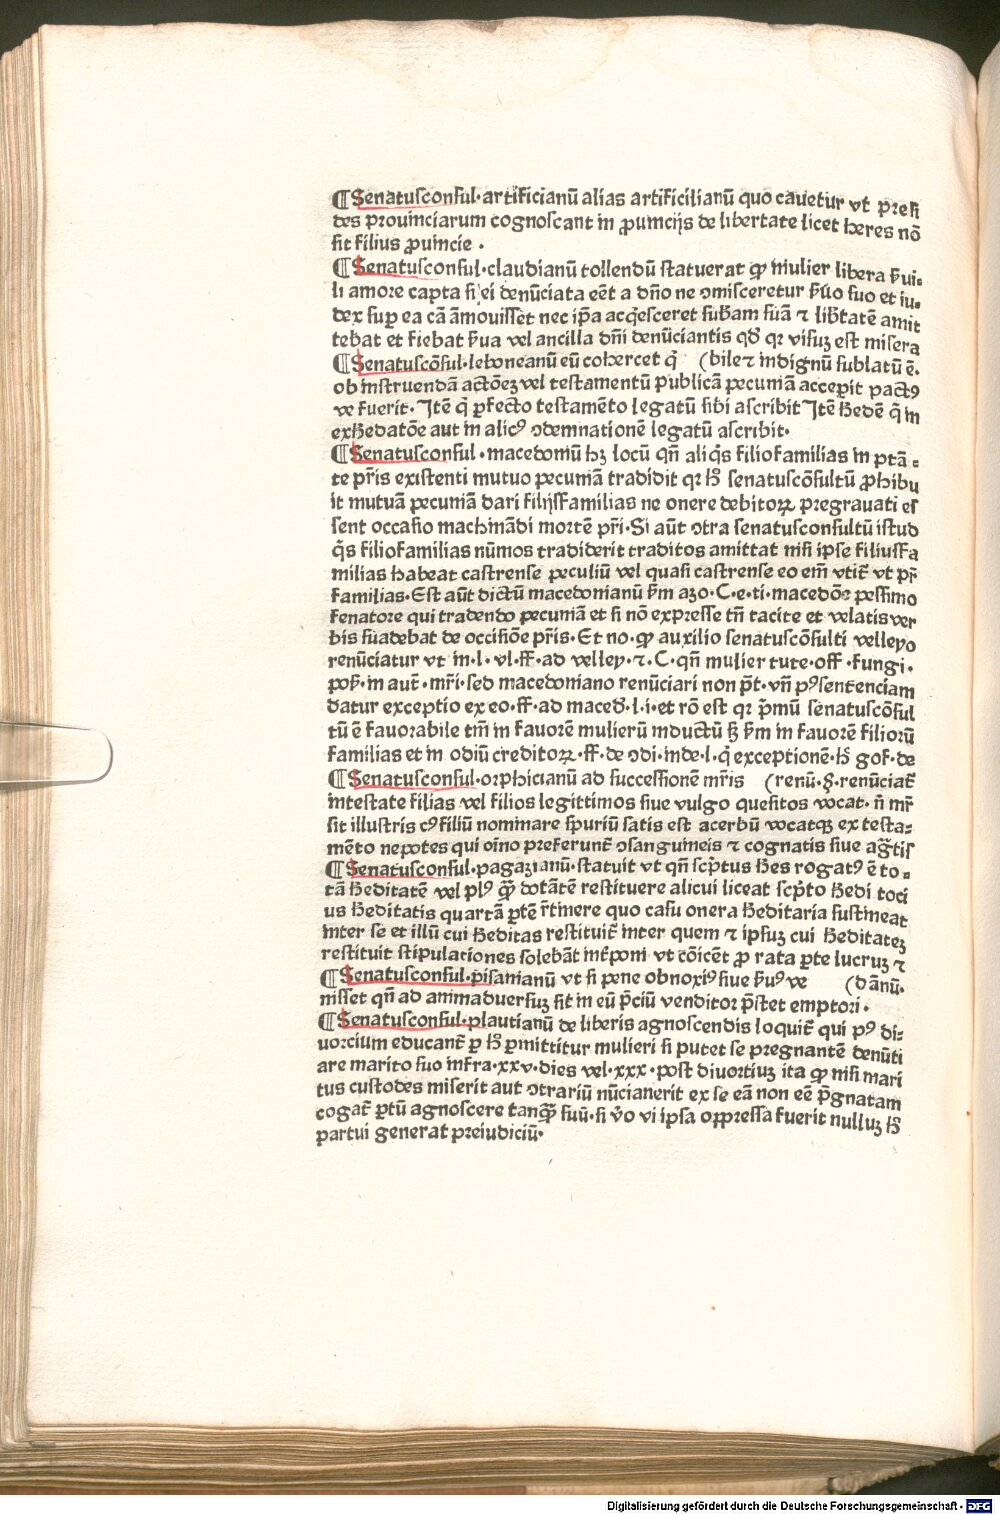 ¶Senatuſconſul·artificianū alias artificilianū quo cavetur vt preſi
des prouinciarum cognoſcant in ꝓuincijs de libertate licet heres nō
ſit filius ꝓuincie.
¶Senatuſconſul·claudianū tollendū ſtatuerat ꝙ mulier libera ẜui-
li amore capta ſi ei denūciata eēt a dño ne ꝯmiſceretur ẜuo ſuo et iu-
dex ſuꝑ ea cā āmouiſſet nec ip̄a acq̄eſceret ſub̄am ſuā ⁊ lib̄tatē amit
tebat et fiebat ẜua vel ancilla dn̄i denūciantis qd̄ qꝛ viſuꝫ eſt miſera
¶Senatuſcōſul·leboneanū eū cohercet q̄ (bile ⁊ indignū ſublatū ē.
ob inſtruendā actōeꝫ vel teſtamentū publicā pecuniā acceperit pactꝰ
ve fuerit·Itē q̄ ꝑfecto teſtamēto legatū ſibi aſcribit Itē hedē q̄ in
exhedatōe aut in alicꝰ ꝯdemnationē legatū aſcribit·
¶Senatuſconſul·macedoniū hꝫ locū qn̄ aliq̄s filiofamilias in ptā-
te pr̄is exiſtenti mutuo pecuniā tradidit qꝛ h̄ ſenatuſcōſultū ꝓhibu
it mutuā pecuniā dari filijſfamilias ne onere debitoꝝ pregrauati eſ
ſent occaſio machināndi mortē pr̄i·Si aūt ꝯtra ſenatuſconſultū iſtud
q̄s filiofamilias nūmos tradiderit traditos amittat niſi ipſe filiuſfa
milias habeat caſtrenſe peculiū vel quaſi caſtrenſe eo em̄ vtit̄ vt pr̄
familias·Eſt aūt dictū macedonianū ẜm azo·C·e·ti·macedōe peſſimo
fenatore qui tradendo pecuniā et ſi nō expreſſe tn̄ tacite et velatis ver
bis ſuadebat de occiſiōe pr̄is·Et no·ꝙ auxilio ſenatuſcōſulti velleyo
renūciatur vt in·l·vl·ff·ad velley·⁊·C·qn̄ mulier tute·off·fungi·
poſ̄·in aut̄·mr̄i·ſed macedoniano renūciari non pt̄·vn̄ pꝰ ſentenciam
datur exceptio ex eo·ff·ad maced̄·l·i·et rō eſt qꝛ pͥmū ſenatuſcōſul
tū ē fauorabile tm̄ in fauorē mulierū inductū ſꝫ ẜm in fauorē filiorū
familias et in odiū creditoꝝ·ff·de ꝯdi·inde·l·q̄ exceptionē·h̄ gof·de
¶Senatuſconſul·orphicianū ad ſucceſſionē mr̄is (renū·§·renūciat̄
inteſtate filias vel filios legittimos ſiue vulgo queſitos vocat·n̄ mr̄
ſit illuſtris cꝰ filiū nominare ſpuriū ſatis eſt acerbū vocatqꝫ ex teſta-
mēto nepotes qui oīno preferunt̄ ꝯſanguineis ⁊ cognatis ſiue agn̄tiſ
¶Senatuſconſul·pagazianū·ſtatuit vt qn̄ ſcp̄tus hes rogatꝰ ē to-
tā heditatē vel plꝰ q̄ꝫ dotātē reſtituere alicui liceat ſcp̄to hedi toci
us heditatis quartā ꝑtē r̄tinere quo caſu onera heditaria ſuſtineat
inter ſe et illū cui heditas reſtituit̄ inter quem ⁊ ipſuꝫ cui heditateꝫ
reſtituit ſtipulationes ſolebāt int̄poni vt cōicēt ꝓ rata ꝑte lucruꝫ ⁊
¶Senatuſconſul·piſanianū vt ſi pene obnoxiꝰ ſiue ẜuꝰ ve (dānū·
niſſet qn̄ ad animaduerſuꝫ ſit in eū pͥciū venditor p̄ſtet emptori·
¶Senatuſconſul·plautianū de liberis agnoſcendis loquit̄ qui pꝰ di-
uorcium educant̄ ꝑ h̄ ꝑmittitur mulieri ſi putet ſe pregnantē denūti
are marito ſuo infra·xxv·dies vel·xxx·poſt divortiuꝫ ita ꝙ niſi mari
tus cuſtodes miſerit aut ꝯtrariū nūcianerit ex ſe eā non eē p̄gnatam
cogat̄ ꝑtū agnoſcere tanq̄ꝫ ſuū·ſi v̄o vi ipſa oppreſſa fuerit nulluꝫ h̄
partui generat preiudiciū·
Digitalisierung gefördert durch die Deutsche Forschungsgemeinschaft - DFG